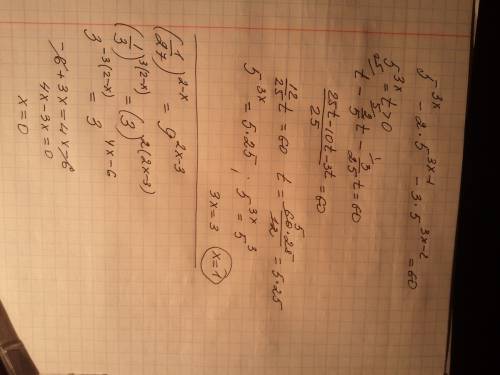 5^{3x} - 2·5^{3x-1} - 3·5^{3x-2} = 60
5^{3x} = t > 0
t - \frac{2}{5}t - \frac{3}{25}t = 60
\frac{25t - 10t - 3t}{25} = 60
\frac{12}{25}t = 60 t = \frac{60·25}{12} = 5·25
5^{3x} = 5·25, 5^{3x} = 5^3
3x = 3 x = 1
(\frac{1}{27})^{2-x} = 9^{2x-3}
(\frac{1}{3})^{3(2-x)} = (3)^{2(2x-3)}
3^{-3(2-x)} = 3^{4x-6}
-6 + 3x = 4x - 6
4x - 3x = 0
x = 0